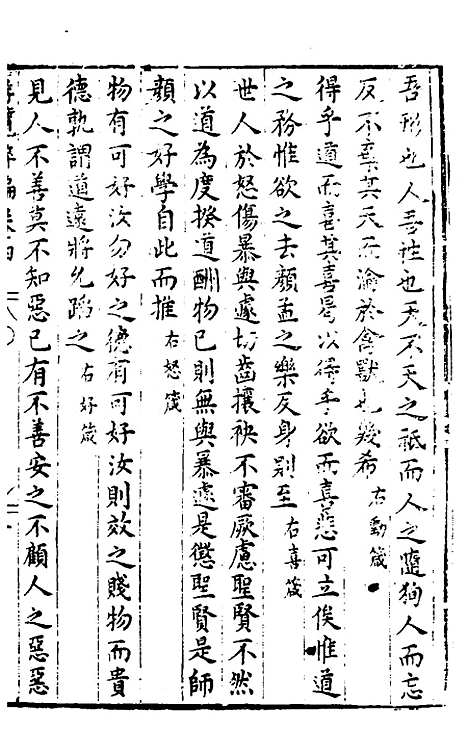 吾形也人吾性也天不天之祗而人之隨狥人而忘
反不棄其天而淪於禽獸也幾希 右動箴
得乎道而喜其喜曷以得乎欲而喜悲可立俟惟道
之務惟欲之去顏孟之樂反身則至 右喜箴
世人於怒傷暴與遽切齒攘袂不審厥慮聖賢不然
以道為度揆道酬物己則無與暴遽是懲聖賢是師
顏之好學自此而推 右怒箴
物有可好汝勿好之德有可好汝則效之賤物而貴
德孰謂道遠將允蹈之 右好箴
見人不善莫不知惡己有不善安之不顧人之惡惡